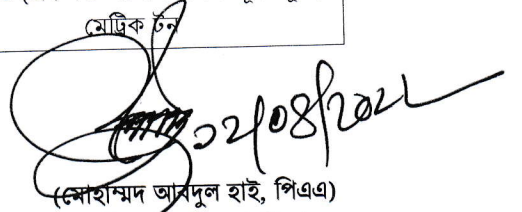 মেট্রিক টন
০২/০৪/২০২২
(মোহাম্মদ আবদুল হাই, পিএএ)